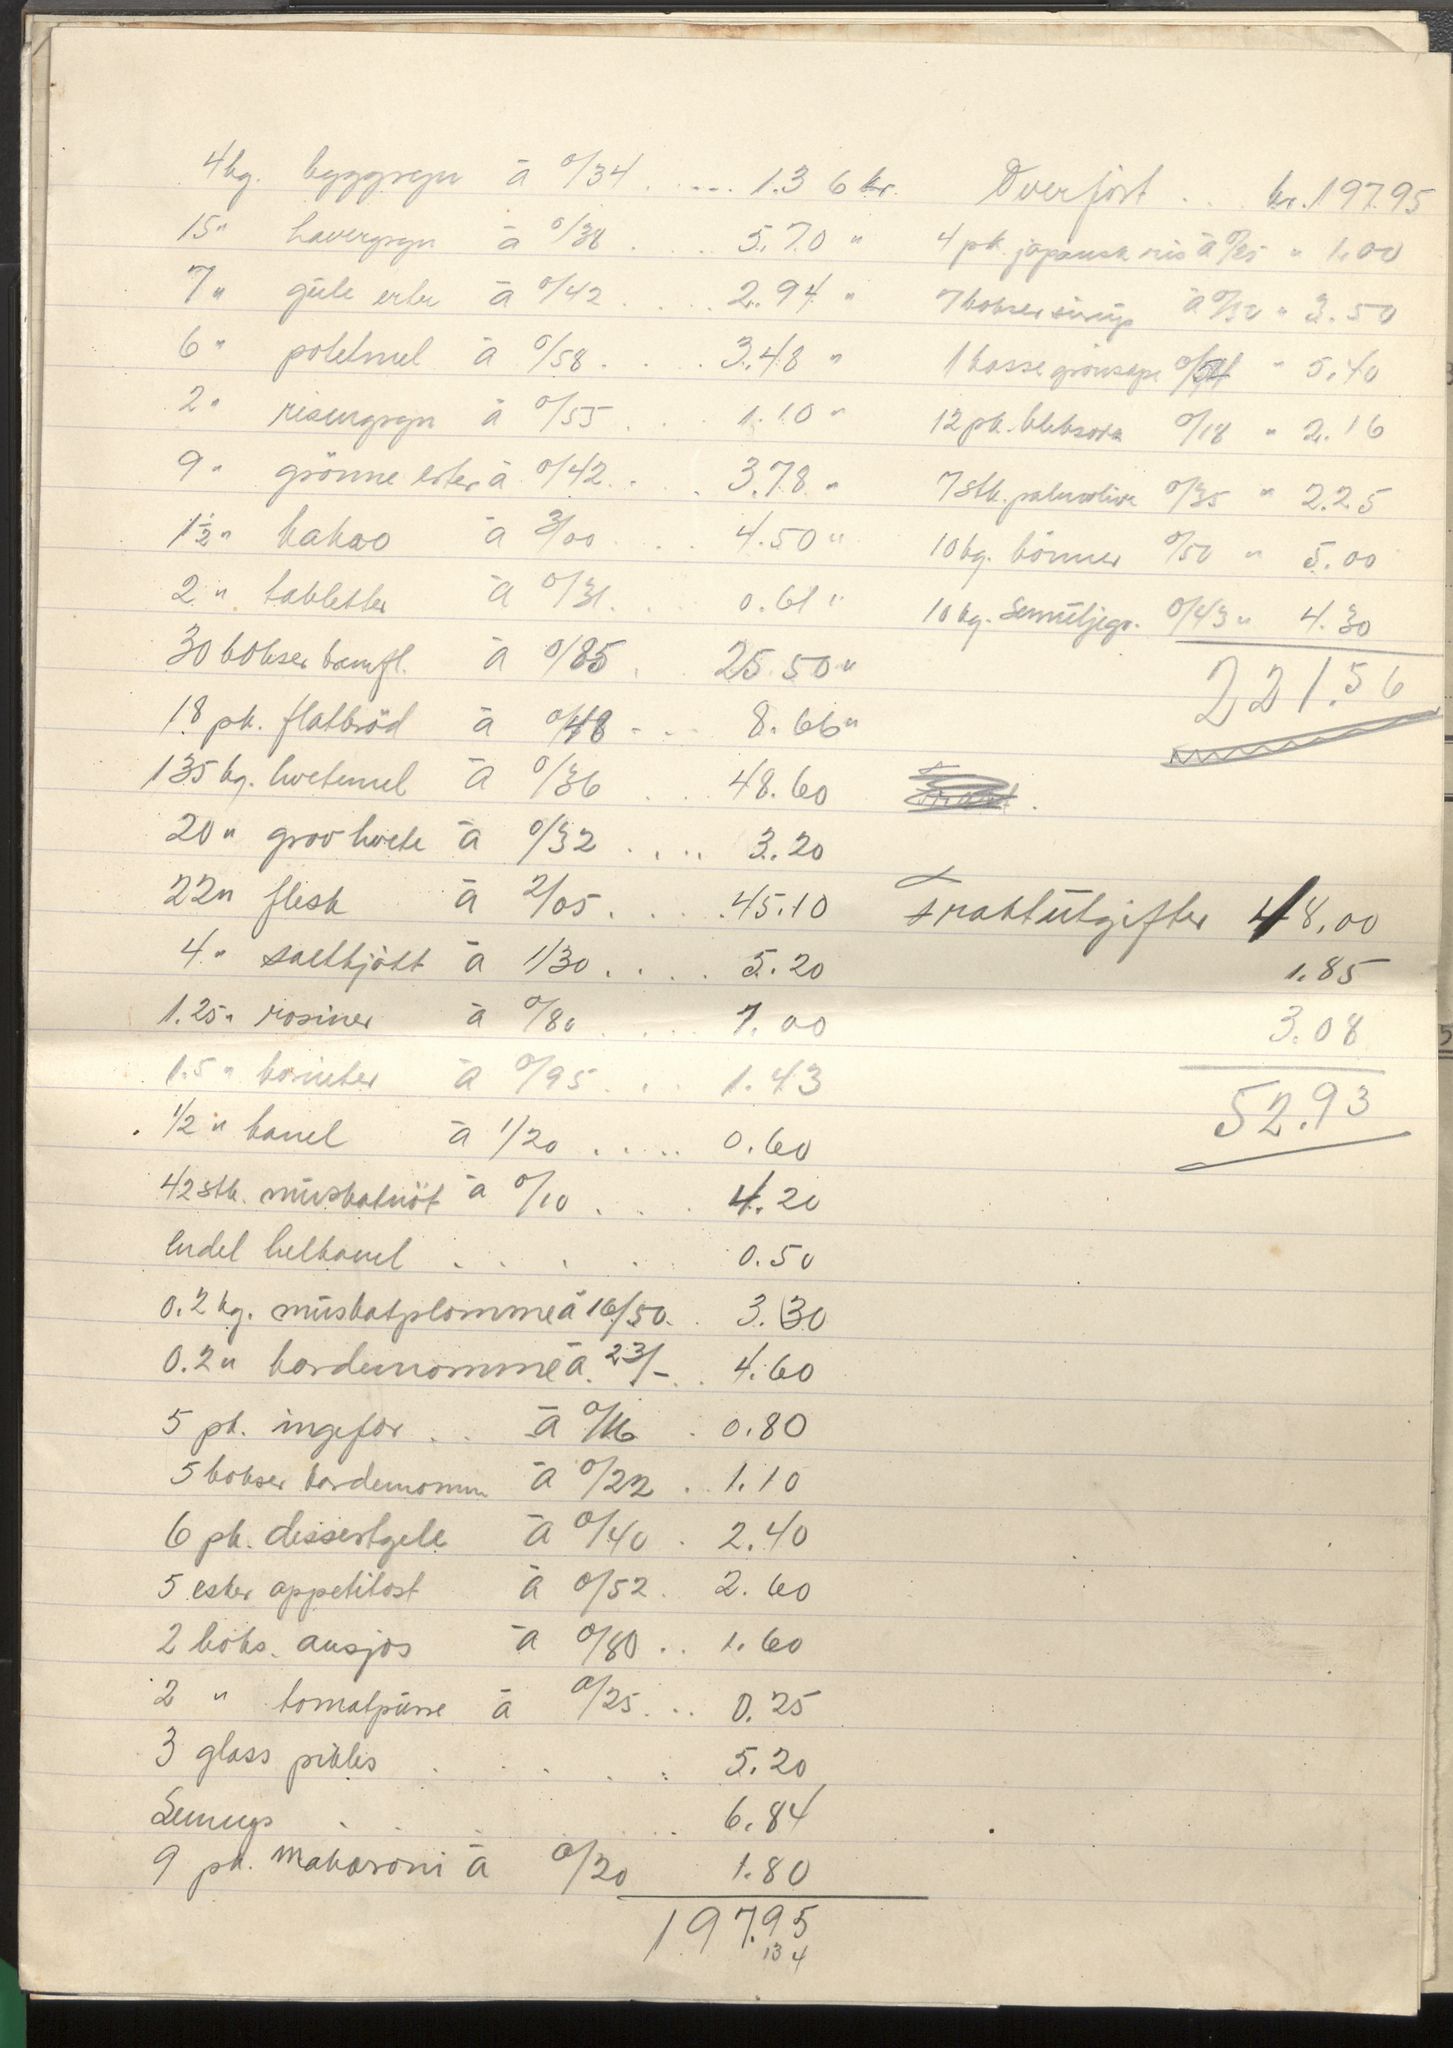 4 kg. byggryn à 0/34 . . . . 1.36 kr.
15 " havergryn à 0/38 . . . . 5.70 "
7 " gule erter à 0/42 . . . . 2.94 "
6 " potetmel à 0/58 . . . . 3.48 "
2 " risengryn à 0/55 . . . . 1.10 "
9 " grönne erter à 0/42 . . . 3.78 "
1½ " kakao à 3/00 . . . . 4.50 "
2 " tabletter à 0/31 . . . . 0.61 "
30 bokser kamfl. à 0/85 . 25.50 "
18 pk. flatbröd à 0/48 . . . 8.66 "
135 kg. hvetemel à 0/36 . . . 48.60
20 " grov hvete à 0/32 . . . . 3.20
22 " flesk à 2/05 . . . . . 45.10
4 " saltkjött à 1/30 . . . . 5.20
1.25 " rosiner à 0/80 . . . . 1.00
1.5 " korinter à 0/95 . . . 1.43
1/2 " kanel à 1/20 . . . . . 0.60
42 stk. muskatnöt à 0/10 . . . . 4.20
Endel helkanel . . . . . 0.50
0.2 kg. muskatplomme à 16/50 . . 3.30
0.2 " kardemomme à 23/- . . 4.60
5 pk. ingefær . . à 0/16 . 0.80
5 bokser kardemomm à 0/22 . 1.10
6 pk. dessertgele à 0/40 . 2.40
5 esker appetitost à 0/52 . 2.60
2 boks. ansjos à 0/80 . . 1.60
2 " tomatpurre à 0/25 . . . 0.25
3 glass pikles . . . . . 5.20
. . . . . 6.84
9 pk. makaroni à 0/20 1.80
197.95
13 4
Overfört . . kr. 197.95
4 pk. japansk ris à 0/25 " 1.00
7 bokser sirup à 0/50 " 3.50
1 kasse grönsåpe 0/54 " 5.40
12 pk. bleksoda 0/18 " 2.16
7 stk. palmolive 0/35 " 2.25
10 kg. bönner 0/50 " 5.00
10 kg. Semuljegr. 0/43 " 4.30
221.56
Fraktutgifter 48.00
1.85
3.08
52.93